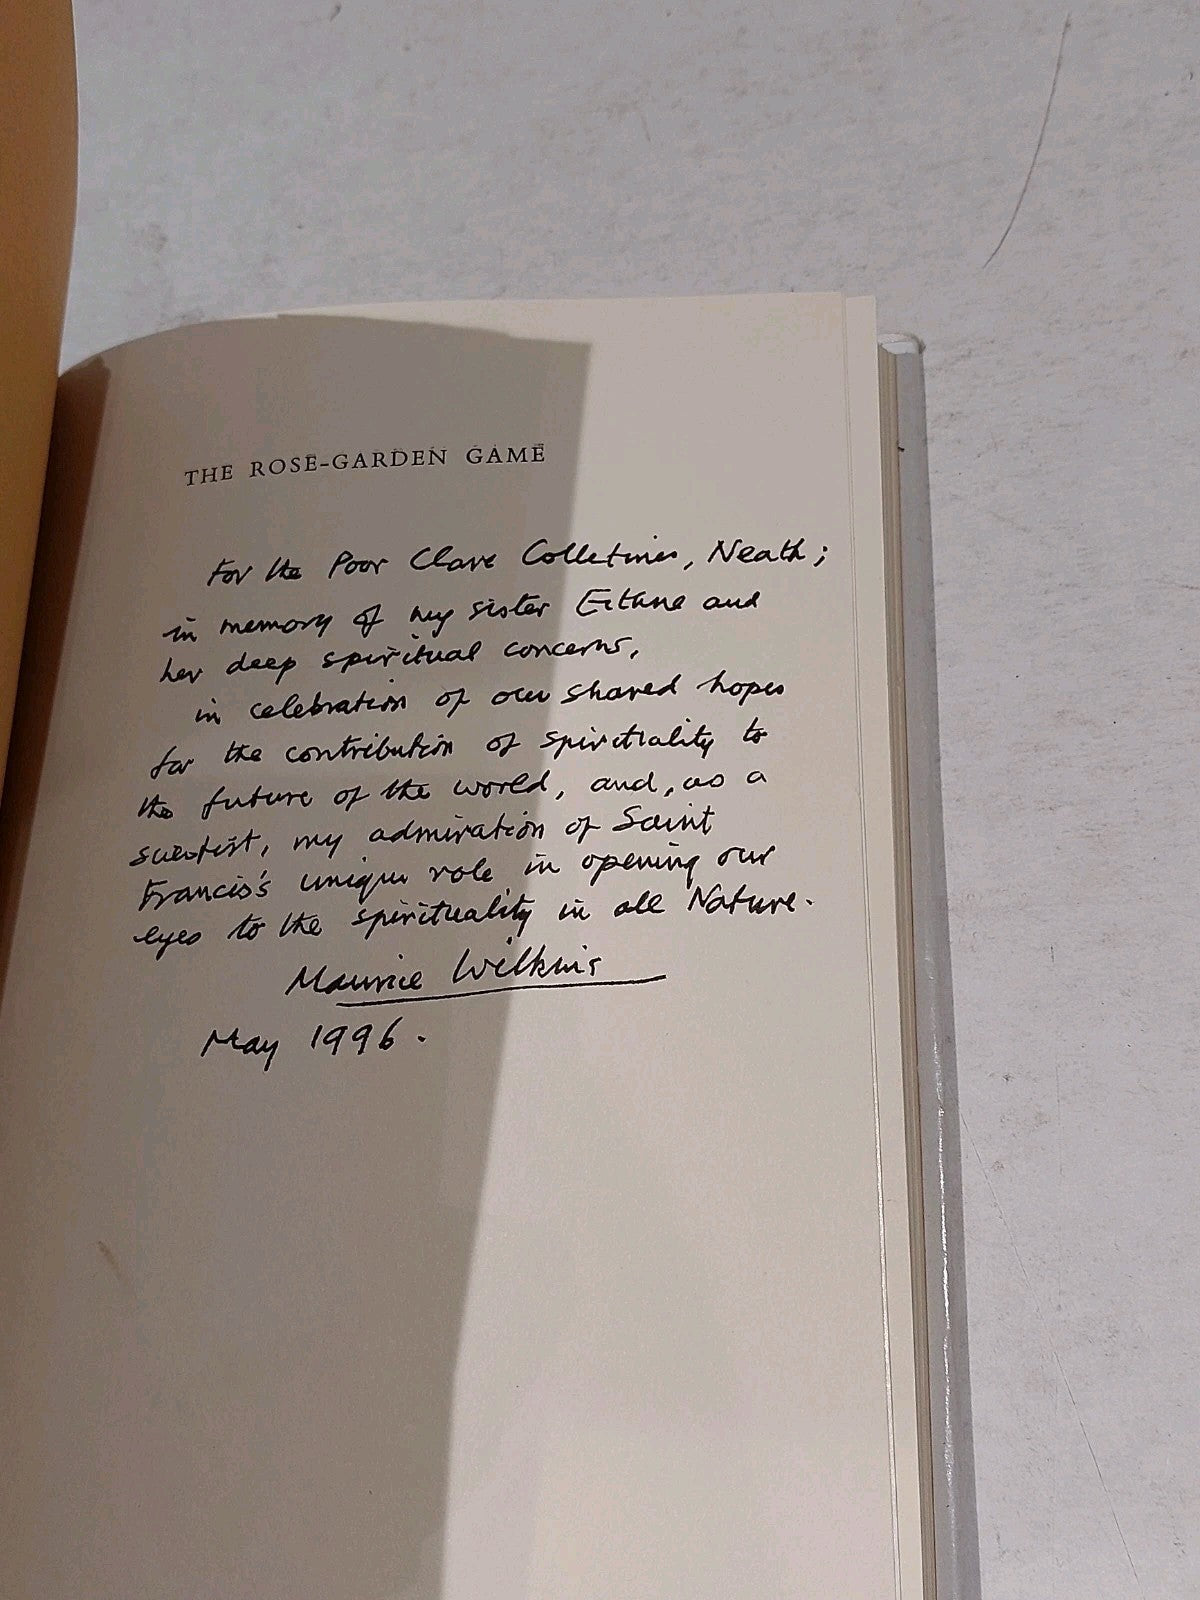 THE ROSE-GARDEN GAME
For the Poor Clare Colletines, Neath;
in memory of my sister Eithne and
her deep spiritual concerns,
in celebration of our shared hopes
for the contribution of spirituality to
the future of the world, and, as a
scientist, my admiration of Saint
Francis's unique role in opening our
eyes to the spirituality in all Nature.
Maurice Wilkins
May 1996.